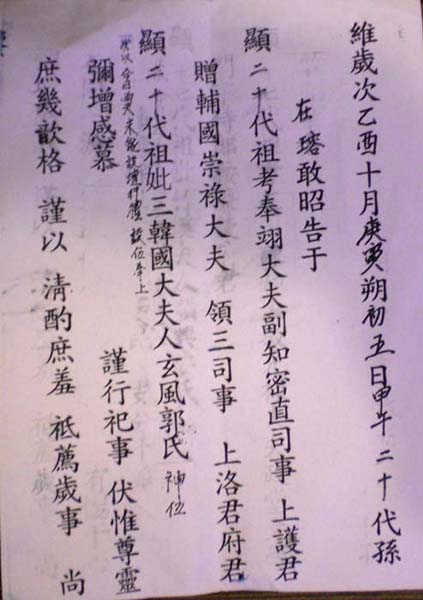 維歲次乙酉十月庚寅朔初五日甲午 二十代孫
在瑢敢昭告于
顯二十代祖考奉翊大夫副知密直司事 上護君
贈輔國崇祿大夫 領三司事 上洛君府君
顯二十代祖妣三韓國大夫人玄風郭氏 神位
以今日 未能設壇 禮 設位奉上
彌增感慕 謹行祀事 伏惟尊靈
庶幾歆格 謹以 淸酌庶羞 祗薦歲事 尚